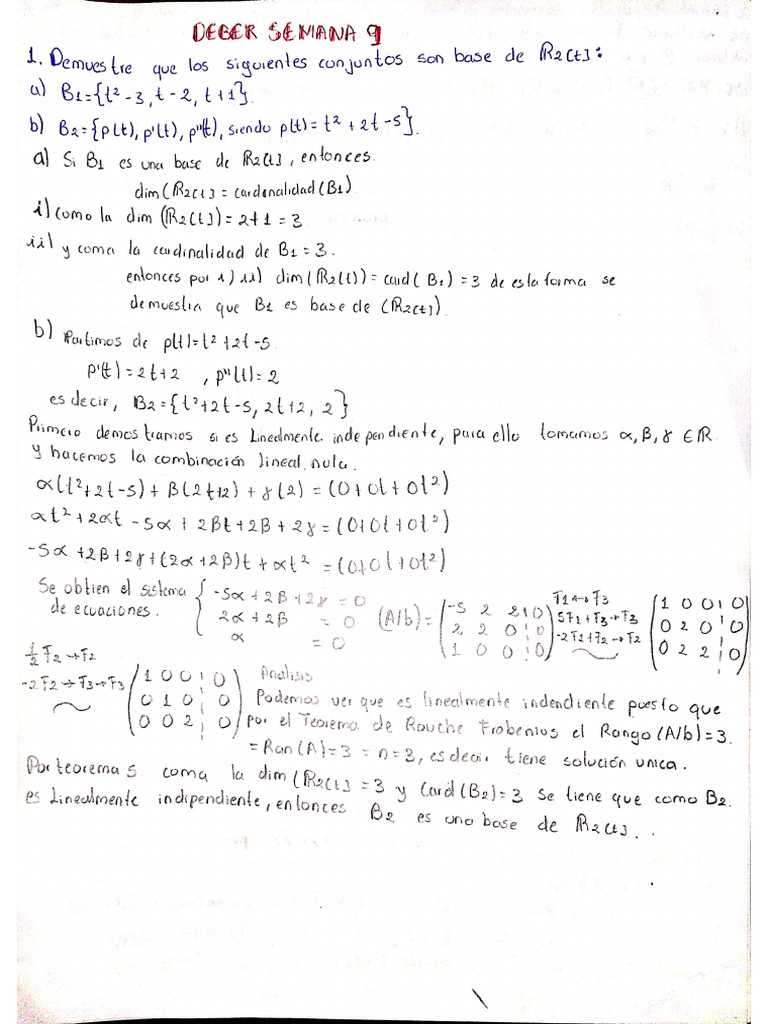 DEBER SEMANA 9
1. Demuestre que los siguientes conjuntos son base de R2[t]:
a) B1={t²-3, t-2, t+1}.
b) B2={p(t), p'(t), p''(t), siendo p(t)=t²+2t-5}.
a) Si B1 es una base de R2[t], entonces.
dim(R2[t] = cardinalidad(B1).
i) como la dim (R2[t]) = 2+1 = 3.
ii) y como la cardinalidad de B1 = 3.
entonces por i) ii) dim(R2(t)) = card(B1) = 3 de esta forma se
demuestra que B1 es base de (R2[t]).
b) Partimos de p(t)=t²+2t-5.
p'(t) = 2t+2 , p''(t)=2
es decir, B2={t²+2t-5, 2t+2, 2}
Primero demostramos si es Linealmente independiente, para ello tomamos α, β, γ ∈ R
y hacemos la combinación lineal nula.
α(t²+2t-5) + β(2t+2) + γ(2) = (0+0t+0t²)
αt²+2αt -5α + 2βt+2β+2γ = (0+0t+0t²)
-5α+2β+2γ+(2α+2β)t + αt² = (0+0t+0t²)
Se obtien el sistema de ecuaciones. { -5α+2β+2γ = 0
2α+2β = 0
α = 0
(A/b) = (-5 2 2 | 0
2 2 0 | 0
1 0 0 | 0)
F1↔F3
5F1+F3→F3
-2F1+F2→F2
(1 0 0 | 0
0 2 0 | 0
0 2 2 | 0)
½F2→F2
-2F2→F3→F3
(1 0 0 | 0
0 1 0 | 0
0 0 2 | 0)
Analisis
Podemos ver que es linealmente indendiente puesto que
por el Teorema de Rouche Frobenius el Rango(A/b)=3.
= Ran(A)=3 = n=3, es decir tiene solución unica.
Por teorema 5 como la dim(R2[t] = 3 y Card(B2)=3 se tiene que como B2.
es Linealmente indipendiente, entonces B2 es una base de R2[t]. .